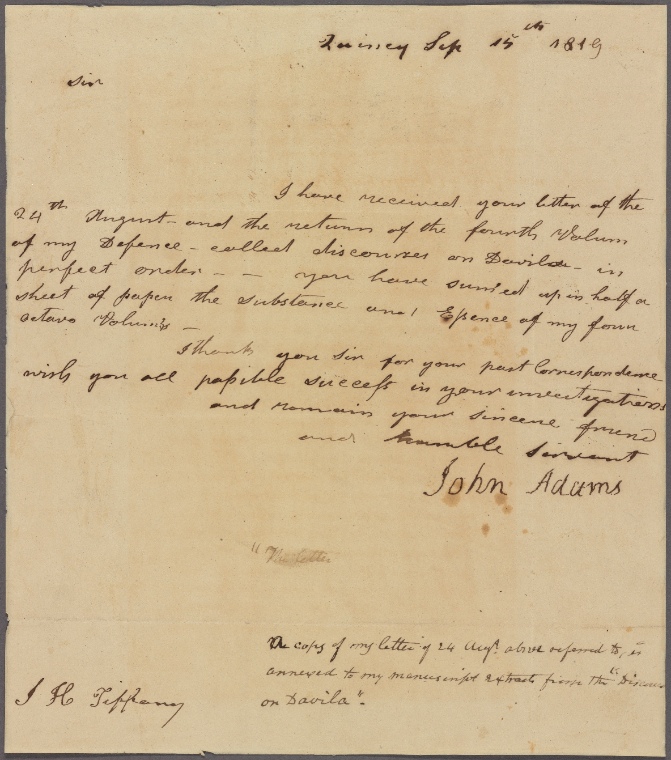 Quincy Sep 15th 1819
Sir
I have received your letter of the
24th August - and the return of the fourth Volum
of my Defence - called discourses on Davila - in
perfect order - - you have sumed up in half a
sheet of paper the substance and Essence of my four
octavo Volums -
I thank you Sir for your past Correspondence
wish you all possible success in your investigations
and remain your sincere friend
and humble servant
John Adams
"The letter
A copy of my letter of 24 Augt. above referred to, is
annexed to my manuscript extracts from the "Discourses
on Davila".
I H Tiffany